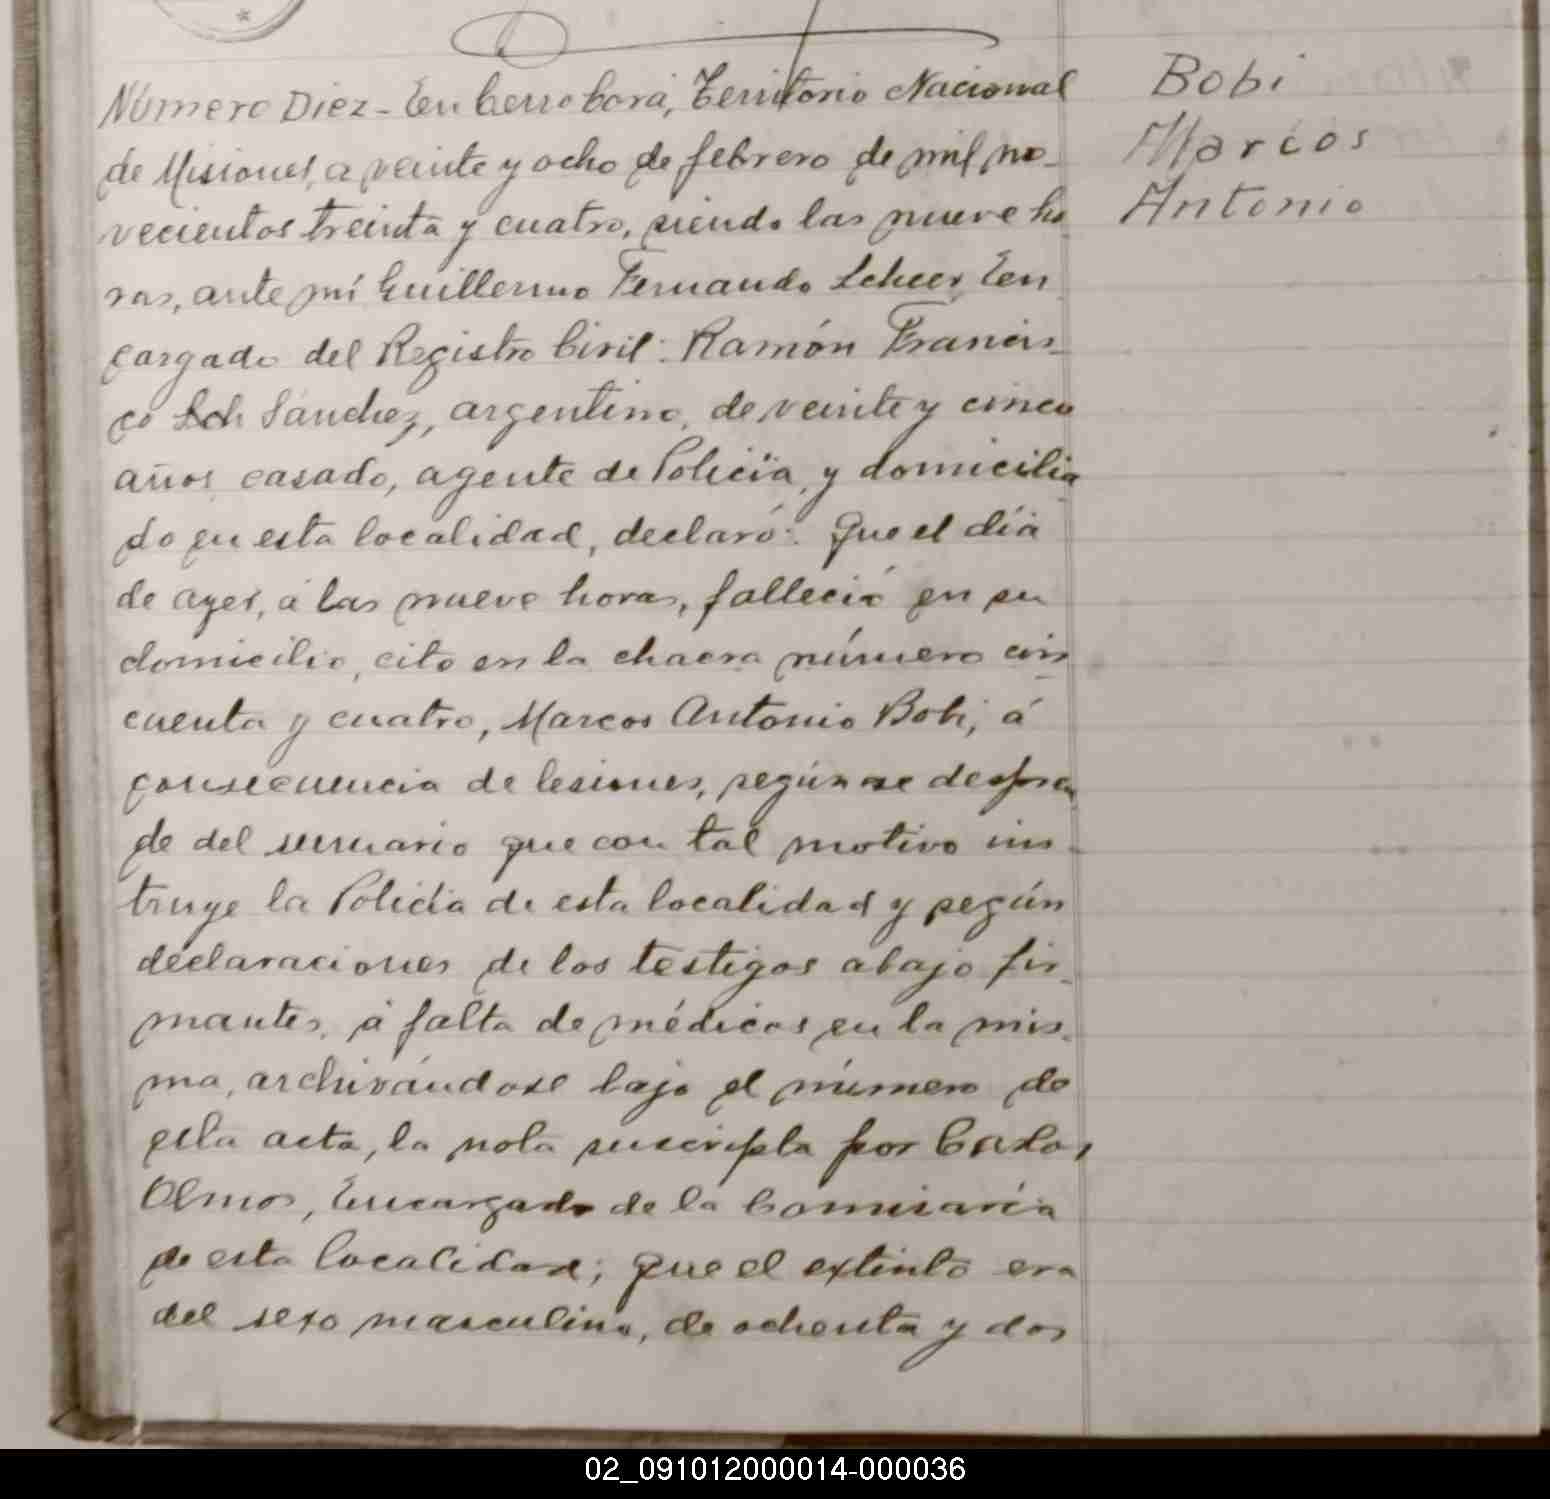 Número Diez - En Cerro Corá, Territorio Nacional
de Misiones, a veinte y ocho de febrero de mil no-
vecientos treinta y cuatro, siendo las nueve ho
ras, ante mí Guillermo Fernando Scheer, En
cargado del Registro Civil: Ramón Francis-
co Sánchez, argentino, de veinte y cinco
años casado, agente de Policía, y domicilia
do en esta localidad, declaró: Que el día
de ayer, á las nueve horas, falleció en su
domicilio, cito en la chacra número cin
cuenta y cuatro, Marcos Antonio Bobi, á
consecuencia de lesiones, según se despren
de del sumario que con tal motivo ins-
truye la Policía de esta localidad y según
declaraciones de los testigos abajo fir-
mantes, á falta de médicos en la mis-
ma, archivándose bajo el número de
esta acta, la nota suscripta por Carlos
Olmos, Encargado de la Comisaría
de esta localidad; que el extinto era
del sexo masculino, de ochenta y dos
Bobi
Marcos
Antonio
02_091012000014-000036